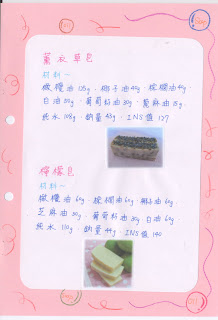 薰衣草皂
材料~
橄欖油125g、椰子油40g、棕櫚油40g
白油50g、葡萄籽油30g、蓖麻油15g、
純水108g、鹼量43g、INS值127
檸檬皂
材料~
橄欖油60g、棕櫚油60g、椰子油60g、
芝麻油30g、葡萄籽油30g、白油60g、
純水110g、鹼量44g、INS值140